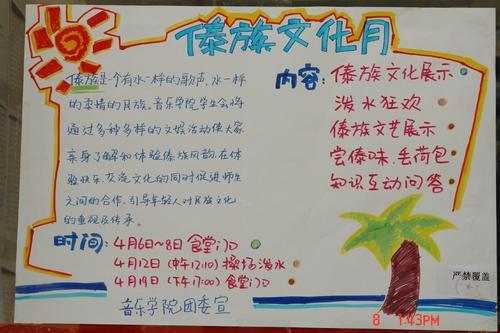 傣族文化月
傣族是一个有水一样的歌声、水一样
的柔情的民族。音乐学院学生会将
通过多种多样的文娱活动使大家
亲身了解和体验傣族风韵,在体
验快乐、交流文化的同时促进师生
之间的合作,引导年轻人对民族文化
的重视及传承。
内容:傣族文化展示
泼水狂欢
傣族文艺展示
尝傣味、丢荷包
知识互动问答
时间:4月6日~8日 食堂门口
4月12日(中午12:10)操场泼水
4月19日(下午17:00)食堂门口
音乐学院团委宣
严禁覆盖
8 1:43PM